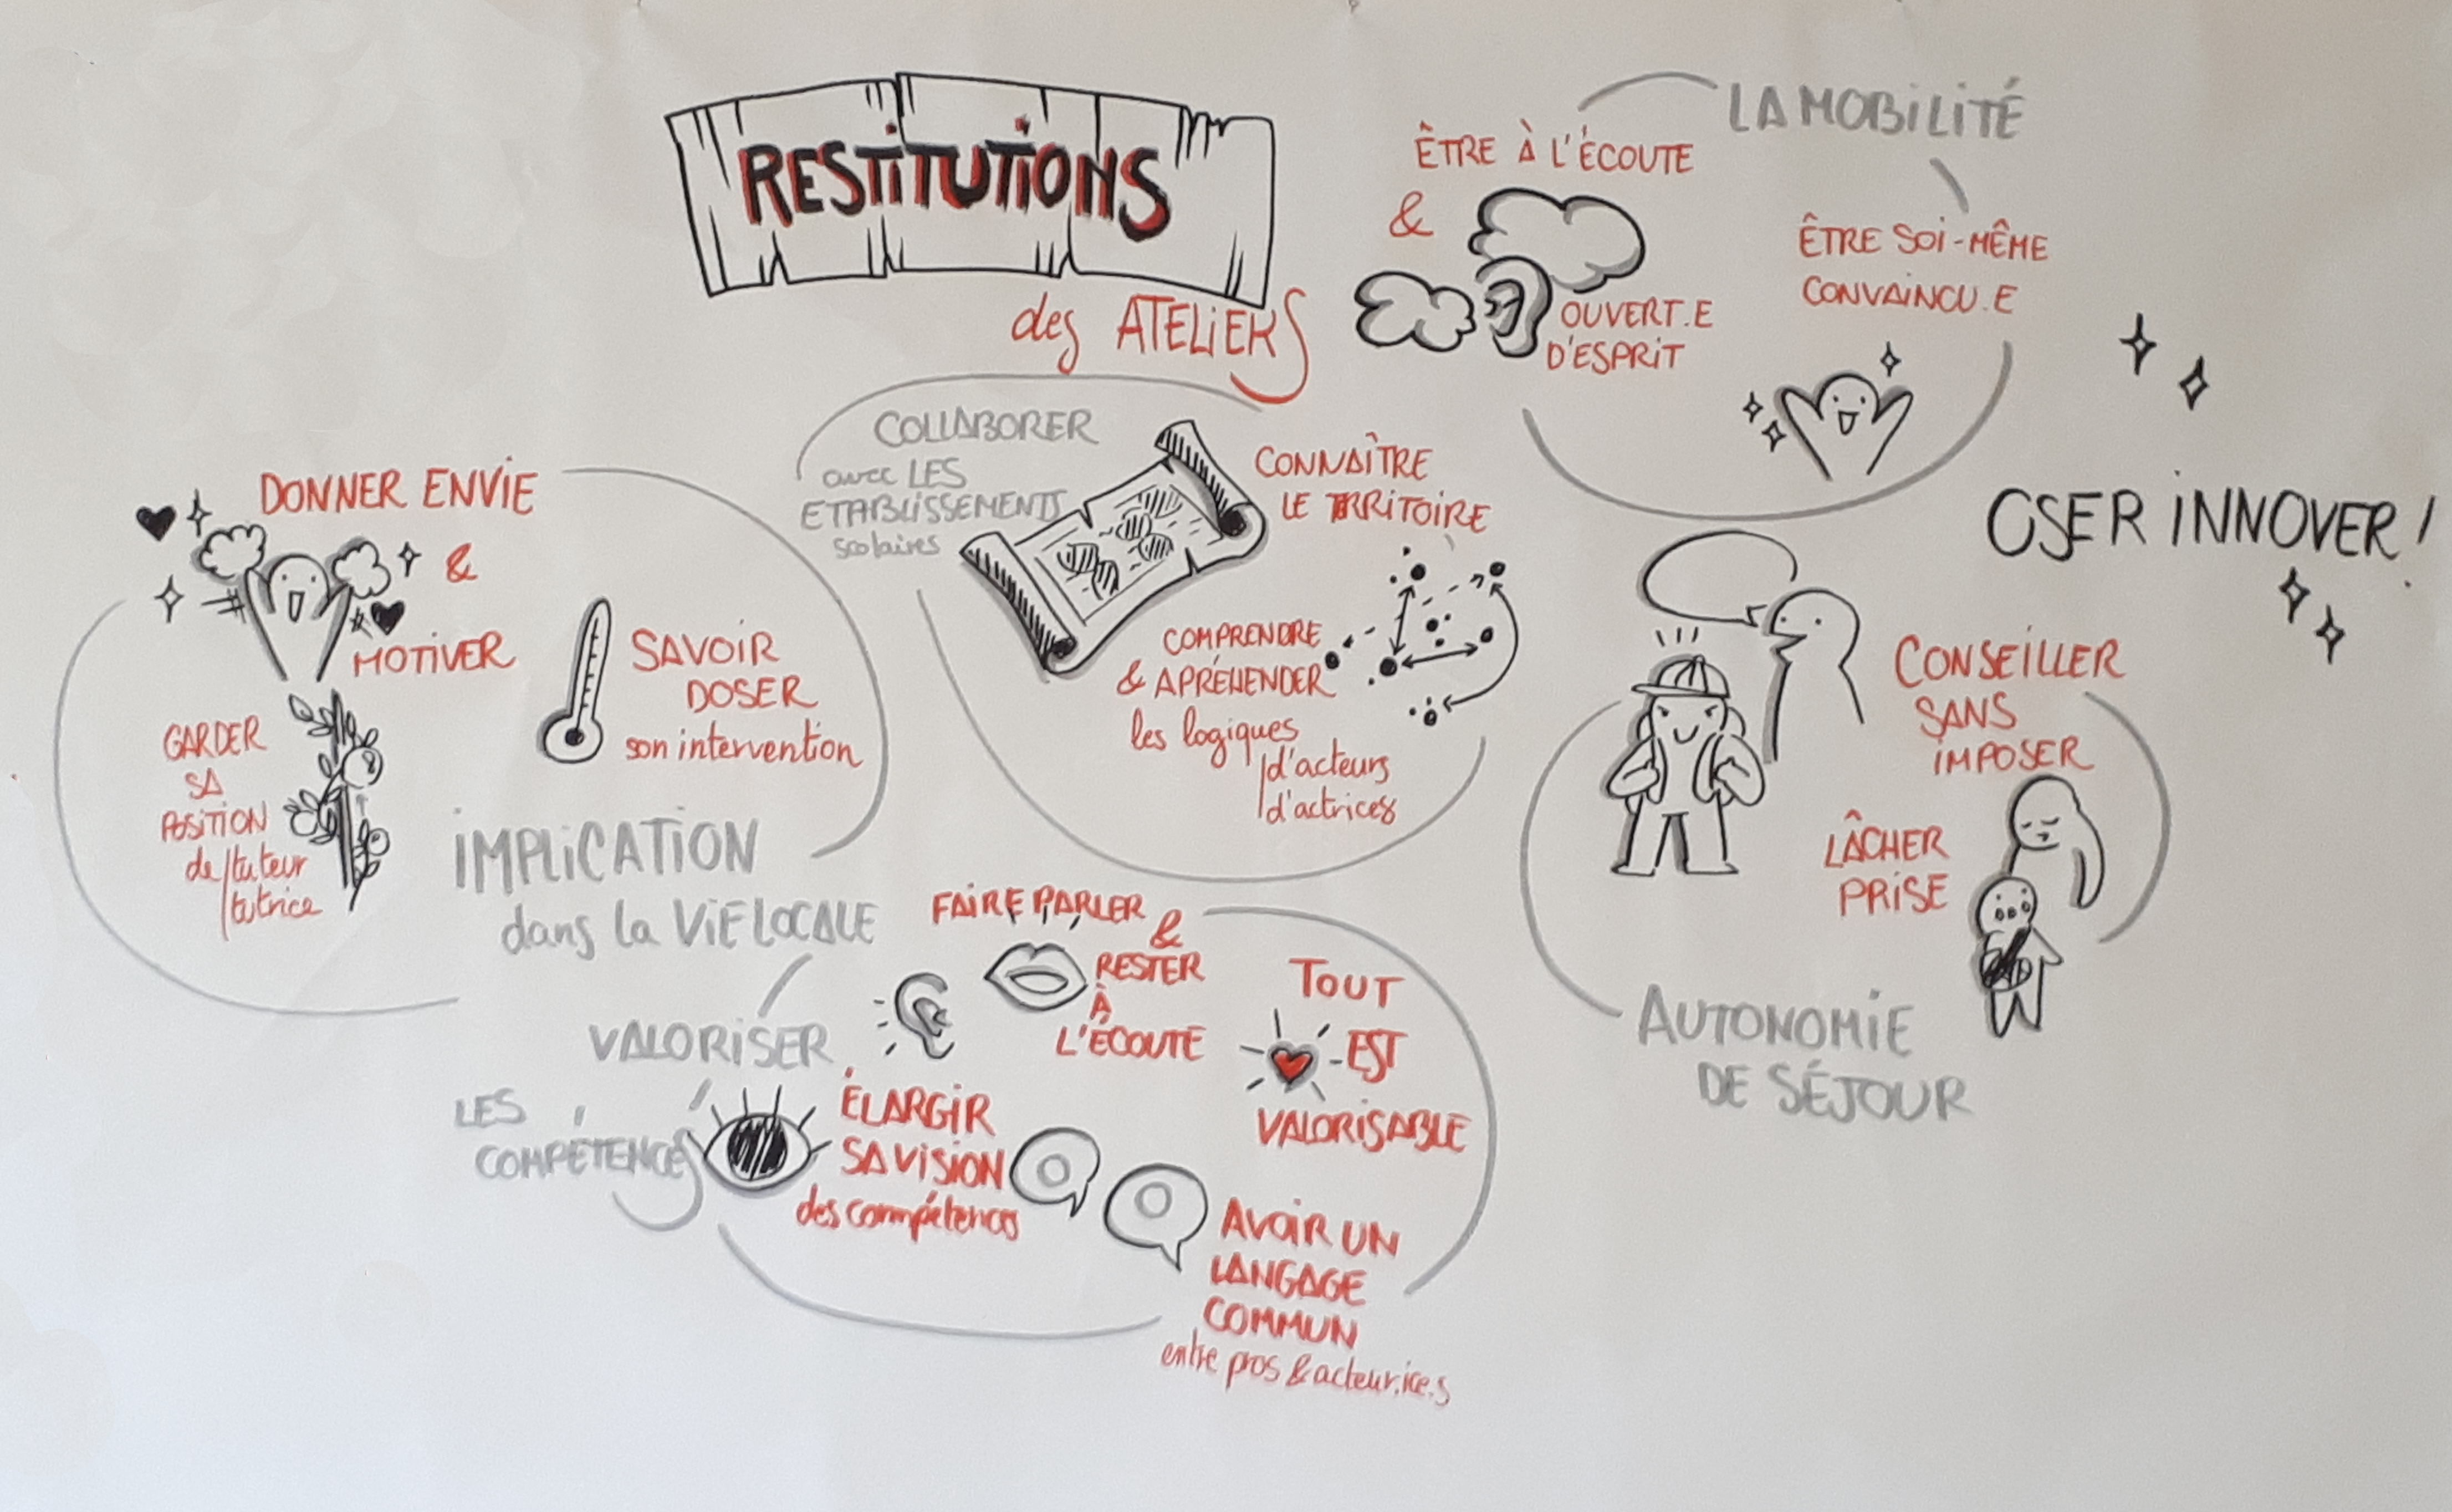 RESTITUTIONS
des ATELIERS
LA MOBILITÉ
ÊTRE À L'ÉCOUTE
&
OUVERT.E
D'ESPRIT
ÊTRE SOI-MÊME
CONVAINCU.E
OSER INNOVER !
COLLABORER
avec LES
ETABLISSEMENTS
scolaires
CONNAÎTRE
LE TRRITOIRE
COMPRENDRE
& APRÉHENDER
les logiques
d'acteurs
d'actrices
DONNER ENVIE
&
MOTIVER
SAVOIR
DOSER
son intervention
GARDER
SA
POSITION
de tuteur
tutrice
IMPLICATION
dans la VIE LOCALE
CONSEILLER
SANS
IMPOSER
LÂCHER
PRISE
AUTONOMIE
DE SÉJOUR
VALORISER
LES
COMPÉTENCES
FAIRE PARLER
&
RESTER
À
L'ÉCOUTE
TOUT
EST
VALORISABLE
ÉLARGIR
SA VISION
des compétences
AVOIR UN
LANGAGE
COMMUN
entre pros & acteur.ice.s